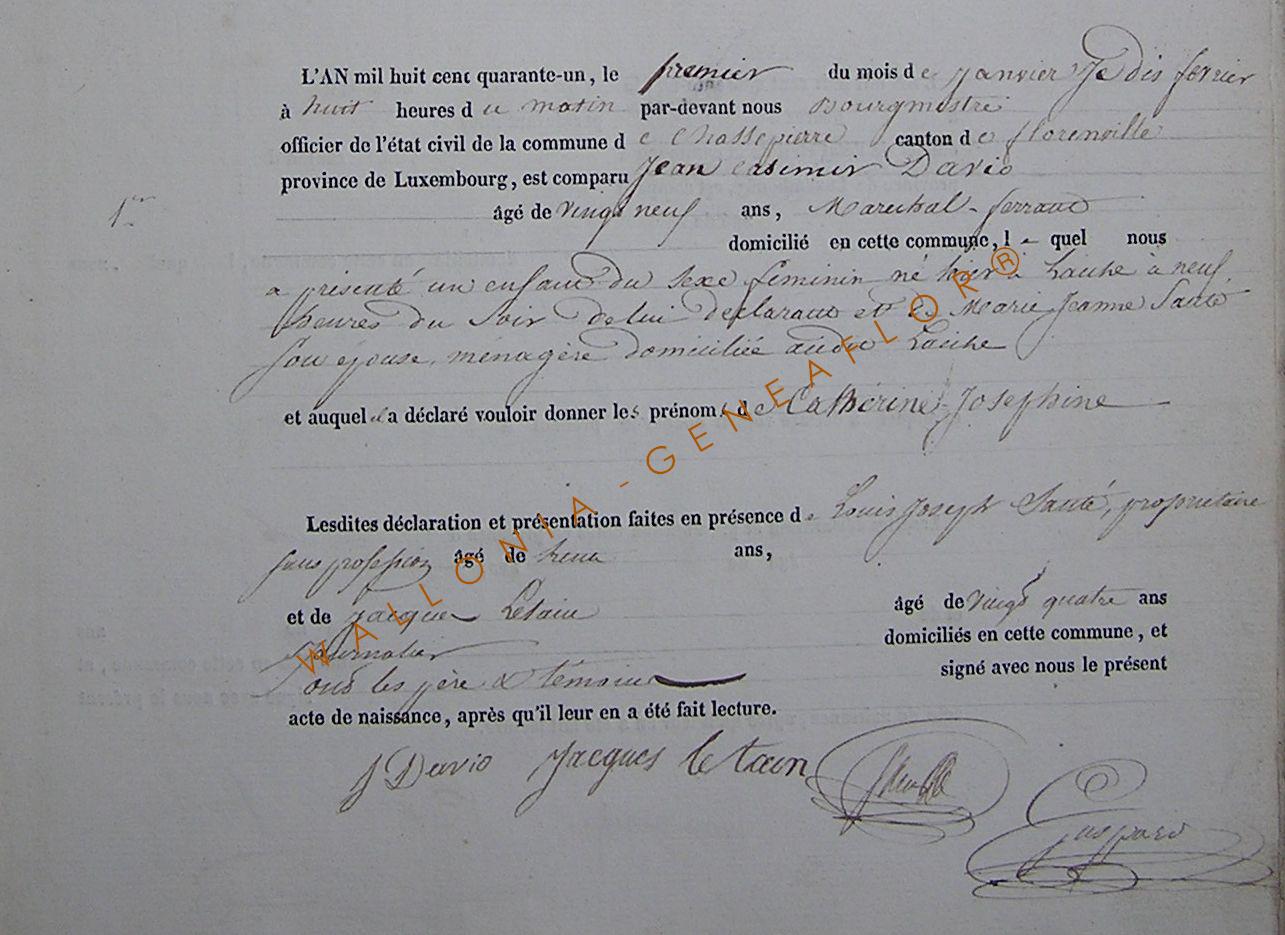 L'AN mil huit cent quarante-un, le premier du mois de janvier Je dis fevrier
à huit heures du matin par-devant nous Bourgmestre
officier de l'état civil de la commune de Chassepierre canton de florenville
province de Luxembourg, est comparu Jean Casimir David
1er
âgé de vingt neuf ans, Marechal-ferrant
domicilié en cette commune, l-quel nous
a présenté un enfant du sexe feminin né hier à Laiche à neuf
heures du soir de lui declarant et de Marie Jeanne Santé
son épouse, ménagère domiciliée audit Laiche
et auquel il a déclaré vouloir donner les prénoms de Cathérine Josephine
Lesdites déclaration et présentation faites en présence de Louis Joseph Santé, proprietaire
sans profession âgé de ans,
et de jacques Letain âgé de vingt quatre ans
journalier domiciliés en cette commune, et
ont les père & témoins signé avec nous le présent
acte de naissance, après qu'il leur en a été fait lecture.
J David Jacques letain
Gaspard
WALLONIA - GENEAFLOR ®